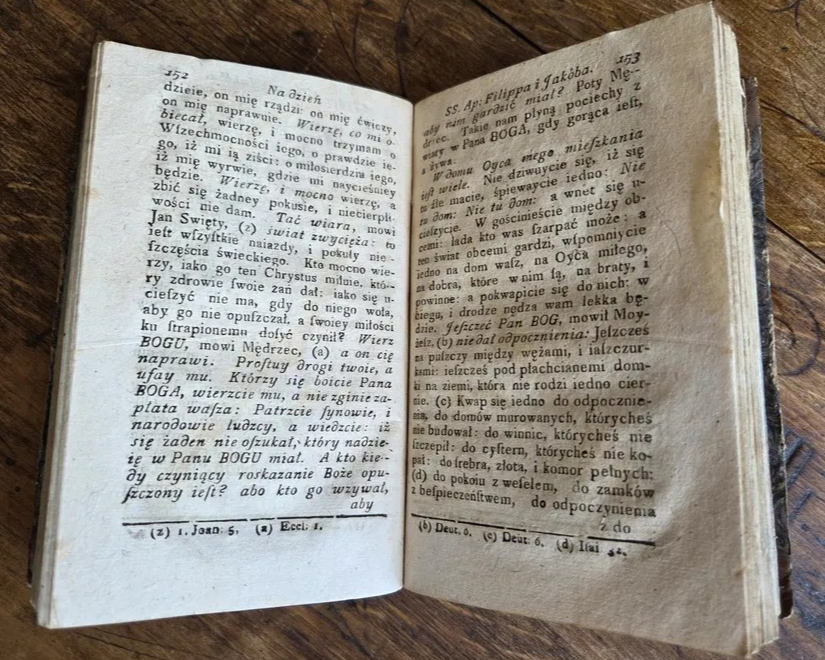 152
Na dzień
dzieie, on mię rządzi: on mię ćwiczy,
on mię naprawuie. Wierzę, co mi o-
biecał, wierzę, i mocno trzymam o
Wſzechmocności iego, o prawdzie ie-
go, iż mi ią ziści: o miłoſierdziu iego,
iż mię wyrwie, gdzie mi nayciéśniey
będzie. Wierzę, i mocno wierzę, a
zbić się żadney pokusie, i niecierpli-
wości nie dam. Tać wiara, mowi
Jan Swięty, (z) świat zwycięża: to
ieſt wſzyſtkie naiazdy, i pokuſy nie-
ſzczęścia świeckiego. Kto mocno wie-
rzy, iako go ten Chrystus miłuie, któ-
ry zdrowie ſwoie zań dał: iako się u-
cieſzyć nie ma, gdy do niego woła,
aby go nie opuſzczał, a ſwoiey miłości
ku ſtrapionemu doſyć czynił? Wierz
BOGU, mowi Mędrzec, (a) a on cię
naprawi. Proſtuy drogi twoie, a
ufay mu. Którzy się boicie Pana
BOGA, wierzcie mu, a nie zginie za-
płata waſza: Patrzcie ſynowie, i
narodowie ludzcy, a wiedzcie: iż
się żaden nie oſzukał, który nadzie-
ię w Panu BOGU miał. A kto kie-
dy czyniący roskazanie Boże opu-
ſzczony ieſt? abo kto go wzywał,
aby
(z) 1. Joan: 5. (a) Eccl: 1.
153
SS. Ap: Filippa i Jakóba.
aby nim gardzić miał? Poty Mę-
drzec. Takie nam płyną pociechy z
wiary w Pana BOGA, gdy gorąca ieſt,
a żywa.
W domu Oyca mego mieſzkania
ieſt wiele. Nie dziwuycie się, iż się
tu źle macie, śpiewaycie iedno: Nie
tu dom: Nie tu dom: a wnet się u-
cieſzycie. W gościnieście między ob-
cemi: lada kto was ſzarpać może: a
ten świat obcemi gardzi, wſpomniycie
iedno na dom waſz, na Oyca miłego,
na dobra, które w nim ſą, na braty, i
powinne: a pokwapicie się do nich: w
biegu, i drodze nędza wam lekka bę-
dzie. Jeſzczeć Pan BOG, mowił Moy-
ieſz, (b) nie dał odpocznienia: Jeſzcześ
na puſzczy między wężami, i iaſzczur-
kami: ieſzcześ pod płachcianemi dom-
ki na ziemi, która nie rodzi iedno cier-
nie. (c) Kwap się iedno do odpocznie-
nia, do domów murowanych, którycheś
nie budował: do winnic, którycheś nie
ſzczepił: do cyſtern, którycheś nie ko-
pał: do ſrebra, złota, i komor pełnych:
(d) do pokoiu z weſelem, do zamków
z beſpieczeńſtwem, do odpoczynienia
z do
(b) Deut. 6. (c) Deut: 6. (d) Iſai 32.